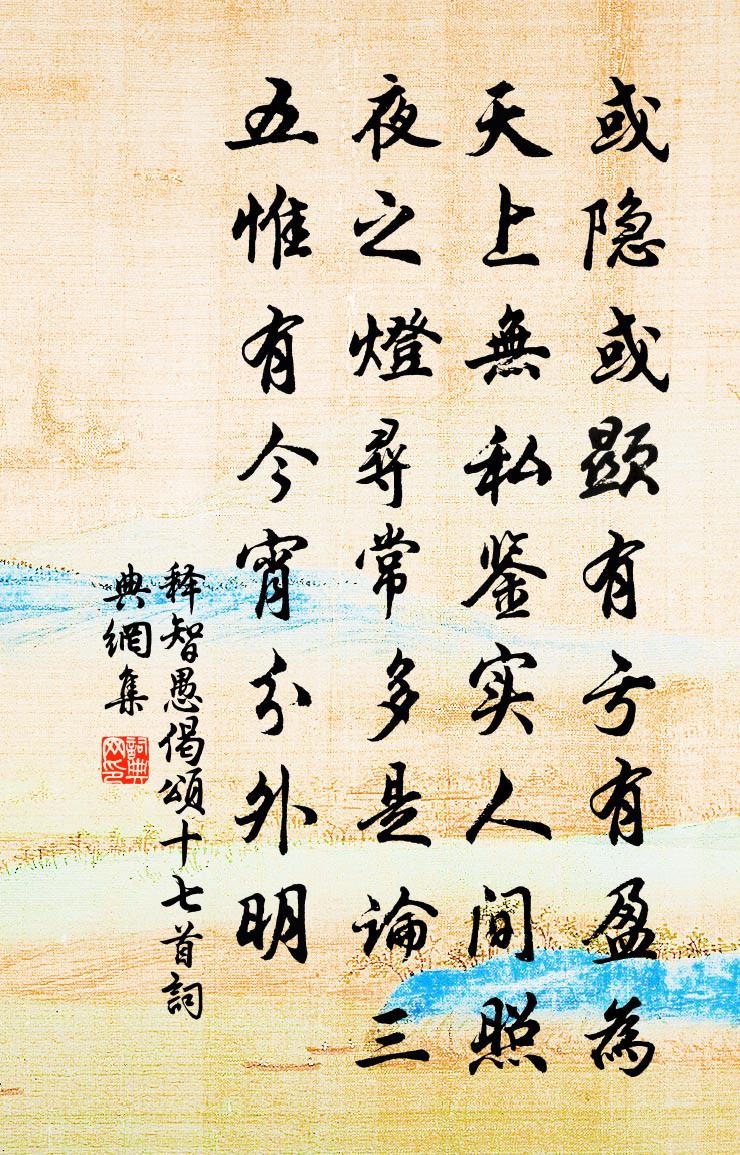 或隐或显有亏有盈為
天上無私鉴实人间照
夜之燈尋常多是論三
五惟有今宵分外明
释智愚偈頌十七首詞
典網集
詞典
网印